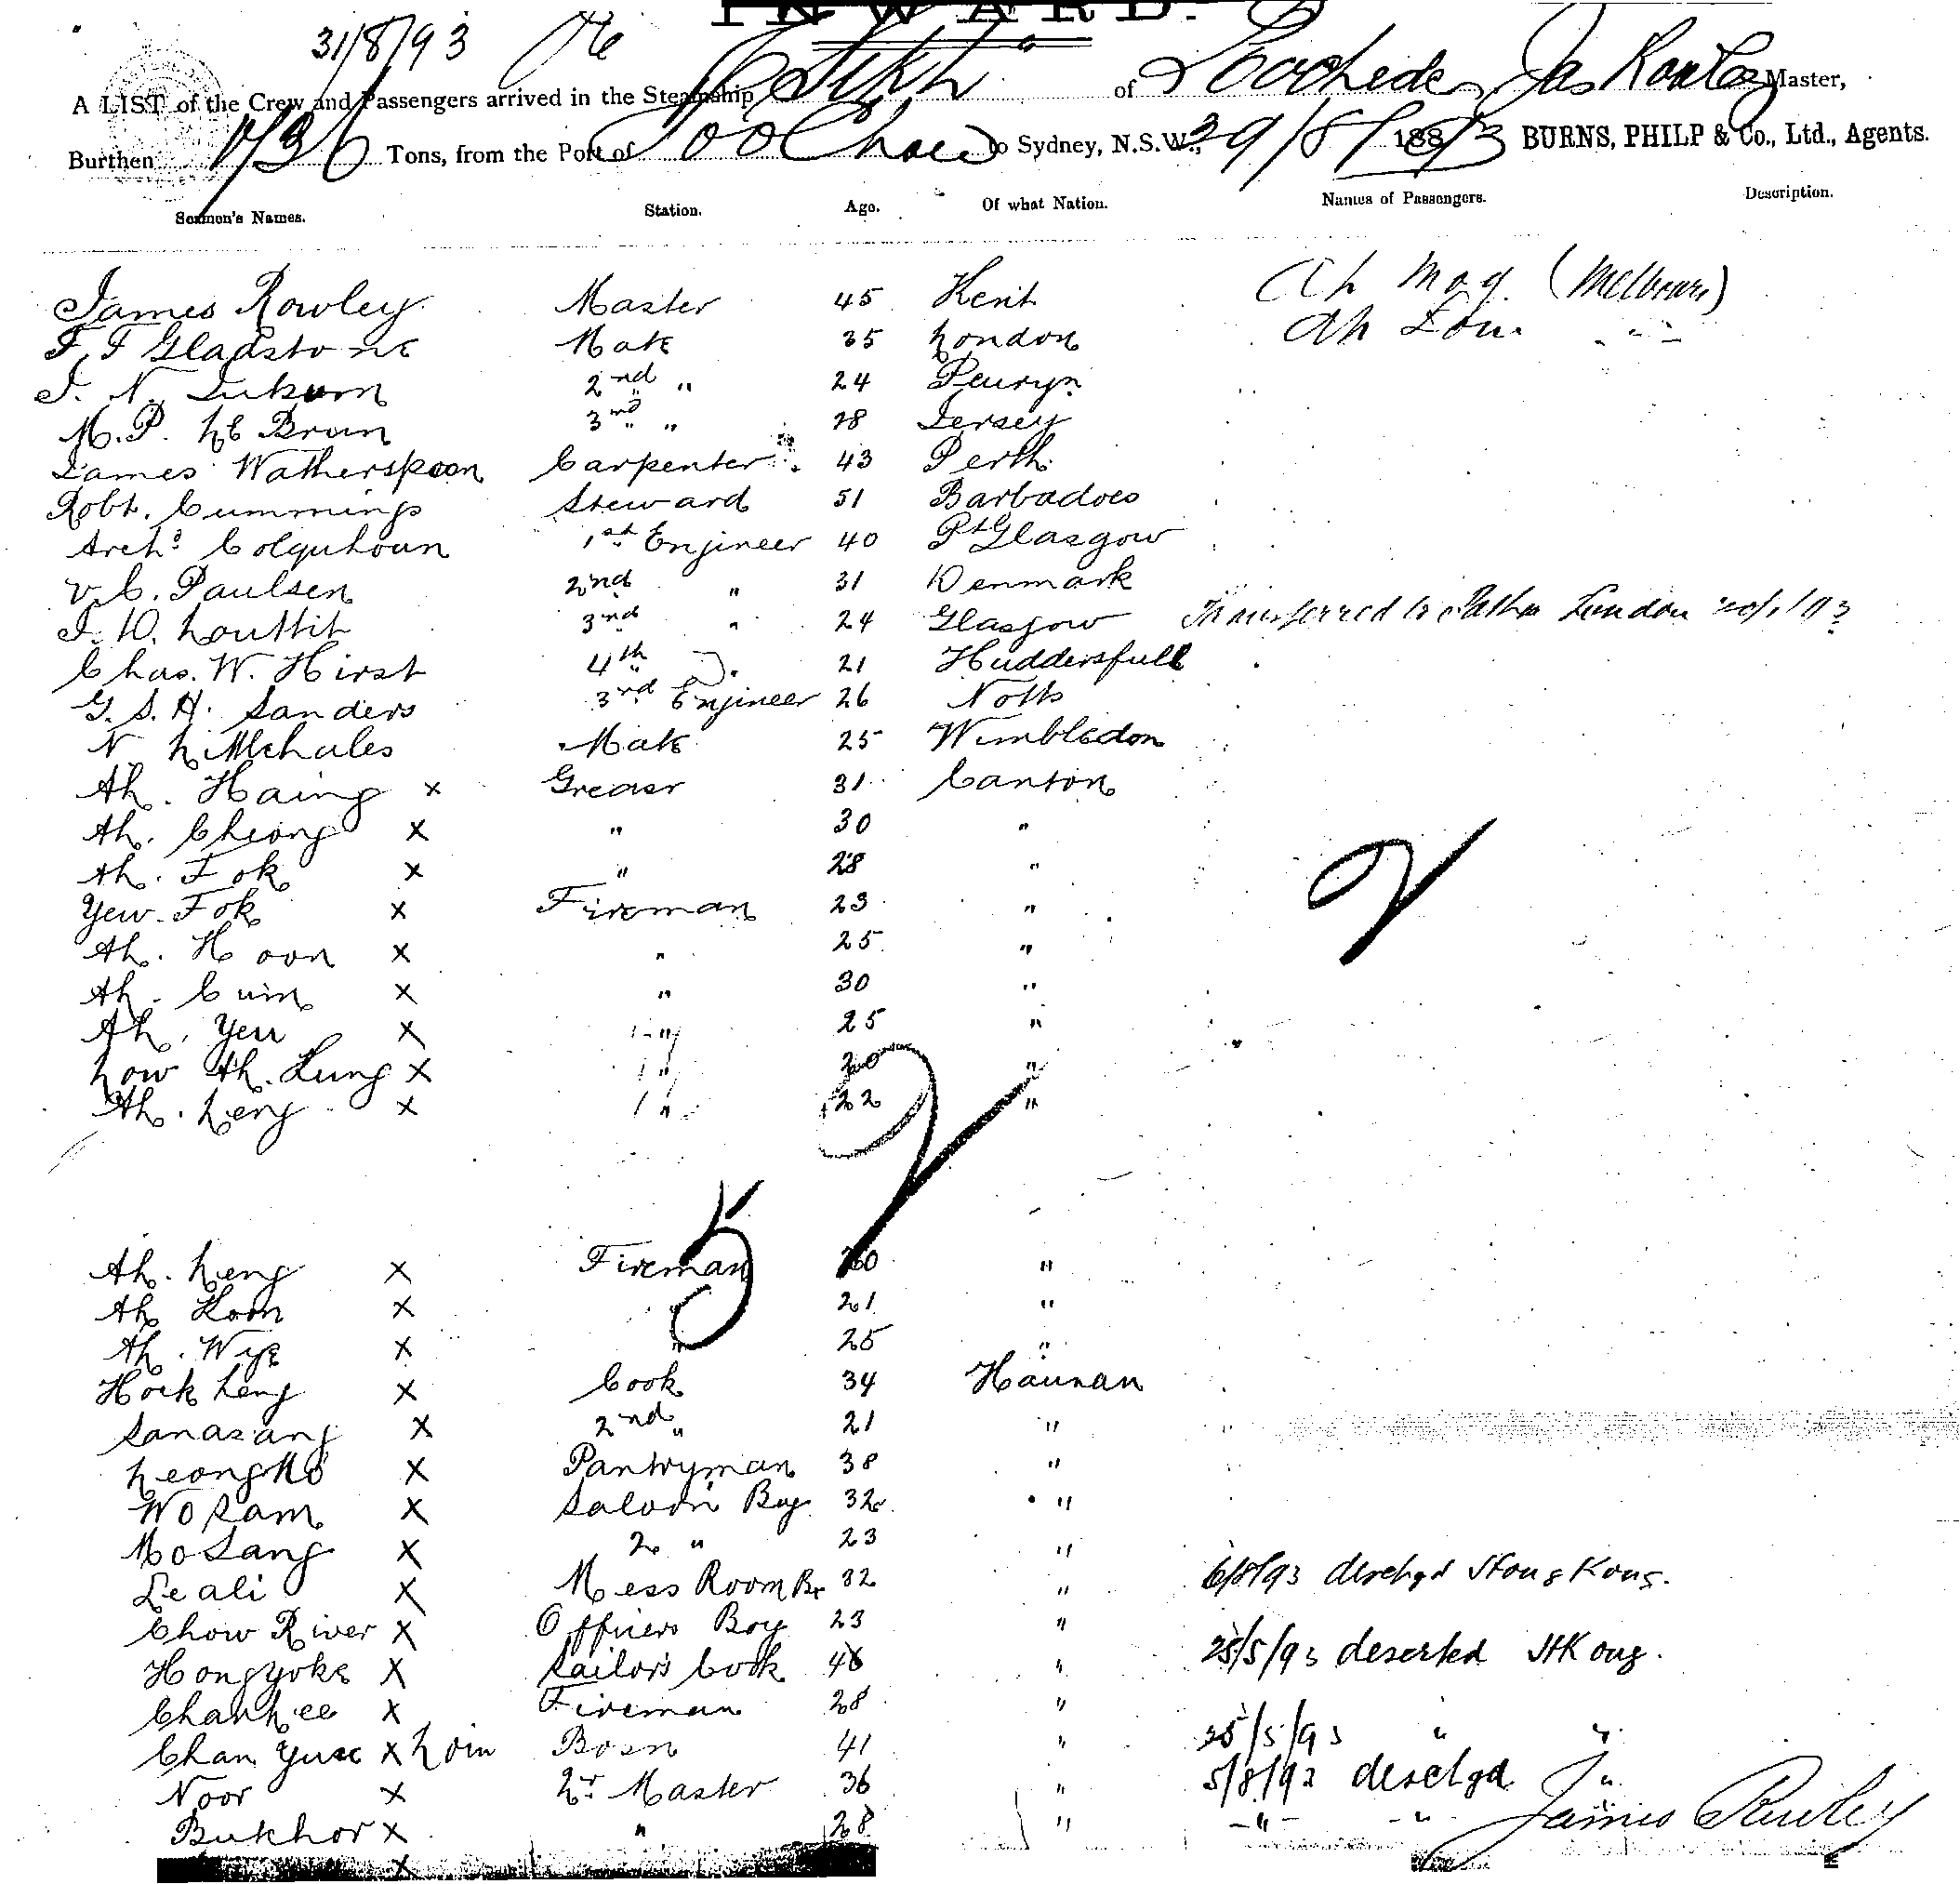 INWARD.
31/8/93
A LIST of the Crew and Passengers arrived in the Steamship "Sikh" of Jas Rowley Master,
Burthen 1736 Tons, from the Port of Foo Chow to Sydney, N.S.W., 29/8/1893 BURNS, PHILP & Co., Ltd., Agents.
Seamen's Names. Station. Age. Of what Nation. Names of Passengers. Description.
James Rowley Master 45 Kent Ah Moy (Melbourne)
F. F Gladstone Mate 35 London Ah Low " "
J. N. 2nd " 24 Penryn
M. P. Le Brun 3rd " 28 Jersey
James Watherspoon Carpenter 43 Perth
Robt. Cummings Steward 51 Barbadoes
Archd Colquhoun 1st Engineer 40 Pt Glasgow
V. C. Paulsen 2nd " 31 Denmark
J. D. Louttit 3rd " 24 Glasgow Transferred to London
Chas. W. Hirst 4th " 21 Huddersfull
G. S. H. Sanders 3rd Engineer 26 Notts
N Mate 25 Wimbledon
Ah. Haing x Greaser 31 Canton
Ah. Cheong x " 30 "
Ah. Fok x " 28 "
Yew. Fok x Fireman 23 "
Ah. Hoon x " 25 "
Ah. Cum x " 30 "
Ah. Yeu x " 25 "
Low Ah. Lung x " 20 "
Ah. Leng x " 22 "
Ah. Leng x Fireman "
Ah Loon x " 21 "
Ah. Wye x " 25 "
Hock Leng x Cook 34 Haunan
Sanasang x 2nd " 21 "
Leong Ko x Pantryman 38 "
Wo Sam x Saloon Boy 32 "
Mo Sang x 2 " 23 "
Le ali x Mess Room Br 32 " 6/8/93 deschgd Hong Kong.
Chow River x Officers Boy 23 "
Hong Yoke x Sailors Cook 46 " 25/5/93 deserted HKong.
Chan Lee x Fireman 28 "
Chan Yuse x Loin Bosn 41 " 25/5/93 " "
Noor x 2r Master 36 " 5/8/93 deschgd "
Bukhor x " 28 " -"- -"- James Rowley
x